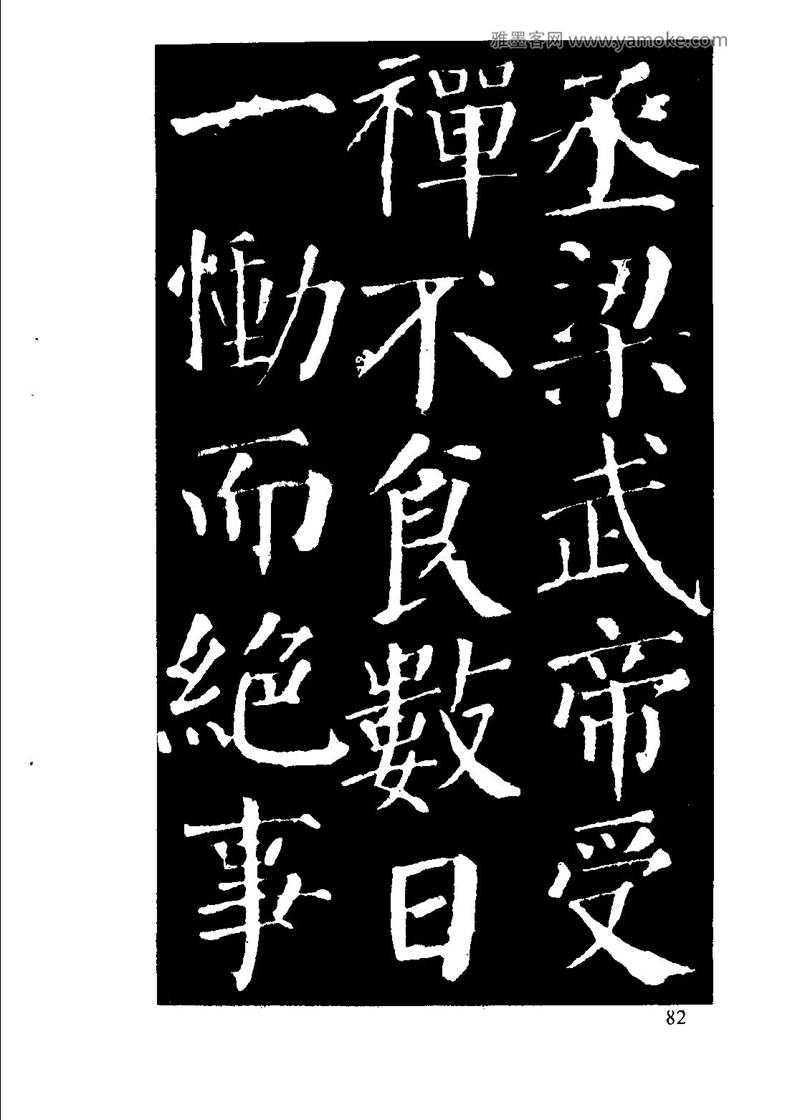 雅墨客网 www.yamoke.com
丞梁武帝受
禪不食數日
一慟而絕事
82